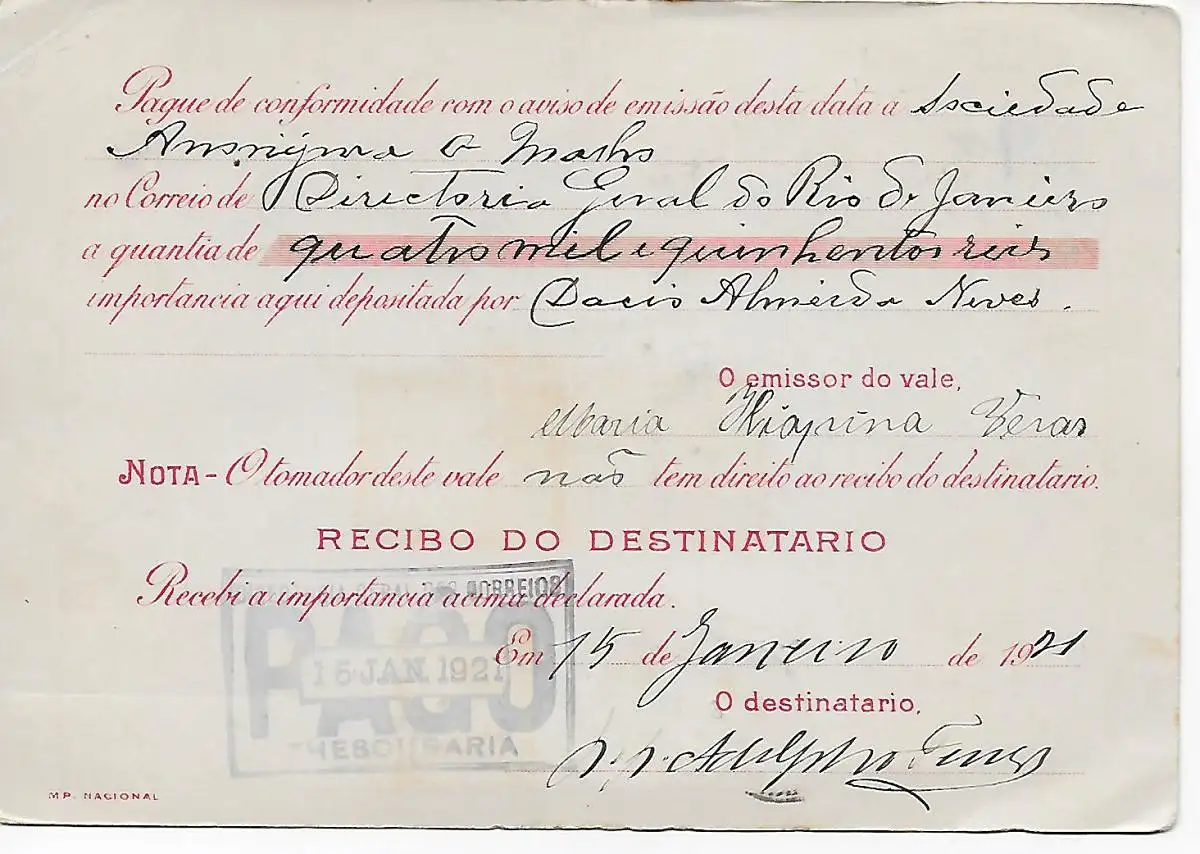 Pague de conformidade com o aviso de emissão desta data a Sociedade
Anonyma O Malho
no Correio de Directoria Geral do Rio de Janeiro
a quantia de quatro mil e quinhentos reis
importancia aqui depositada por Dacio Almeida Neves.
O emissor do vale,
Maria Veras
NOTA - O tomador deste vale não tem direito ao recibo do destinatario.
RECIBO DO DESTINATARIO
CORREIOS
Recebi a importancia acima declarada.
PAGO
Em 15 de Janeiro de 1921
15 JAN. 1921
O destinatario,
THESOURARIA
p.p. Adolpho
MP. NACIONAL